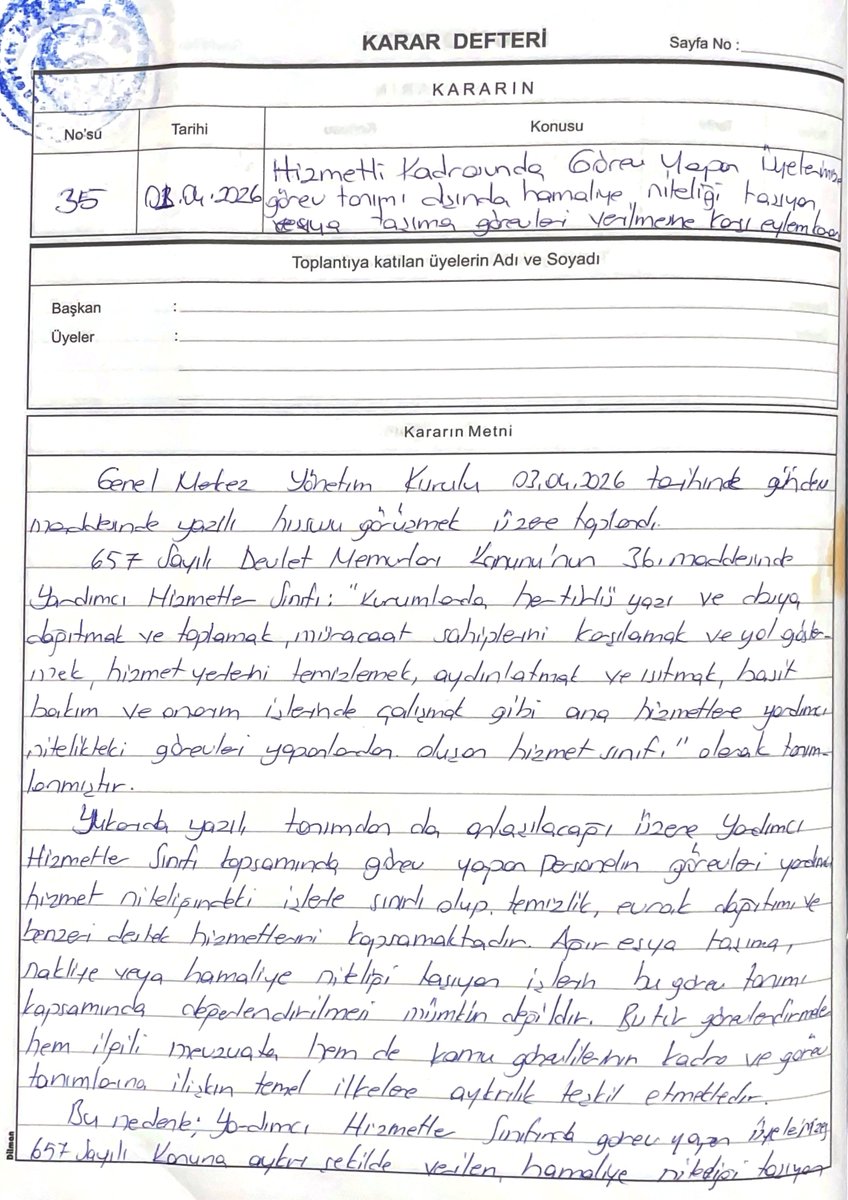 KARAR DEFTERİ
Sayfa No :
KARARIN
No'sú
Tarihi
Konusu
35
03.04.2026
Hizmetli Kadrosunda Görev Yapan Üyelerimize
görev tanımı dışında hamaliye niteliği taşıyan
eşya taşıma görevleri verilmesine karşı eylem kararı
Toplantıya katılan üyelerin Adı ve Soyadı
Başkan :
Üyeler :
Kararın Metni
Genel Merkez Yönetim Kurulu 03.04.2026 tarihinde gündem
maddesinde yazılı hususu görüşmek üzere toplandı.
657 Sayılı Devlet Memurları Kanunu'nun 36. maddesinde
Yardımcı Hizmetler Sınıfı: "Kurumlarda, her türlü yazı ve dosya
dağıtmak ve toplamak, müracaat sahiplerini karşılamak ve yol göster-
mek, hizmet yerlerini temizlemek, aydınlatmak ve ısıtmak, basit
bakım ve onarım işlerinde çalışmak gibi ana hizmetlere yardımcı
nitelikteki görevleri yapanlardan oluşan hizmet sınıfı" olarak tanım-
lanmıştır.
Yukarıda yazılı tanımdan da anlaşılacağı üzere Yardımcı
Hizmetler Sınıfı kapsamında görev yapan personelin görevleri yardımcı
hizmet niteliğindeki işlerle sınırlı olup, temizlik, evrak dağıtımı ve
benzeri destek hizmetlerini kapsamaktadır. Ağır eşya taşıma,
nakliye veya hamaliye niteliği taşıyan işlerin bu görev tanımı
kapsamında değerlendirilmesi mümkün değildir. Bu tür görevlendirmeler
hem ilgili mevzuata, hem de kamu görevlilerinin kadro ve görev
tanımlarına ilişkin temel ilkelere aykırılık teşkil etmektedir.
Bu nedenle; Yardımcı Hizmetler Sınıfında görev yapan üyelerimize
657 Sayılı Kanuna aykırı şekilde verilen, hamaliye niteliği taşıyan
Dilman